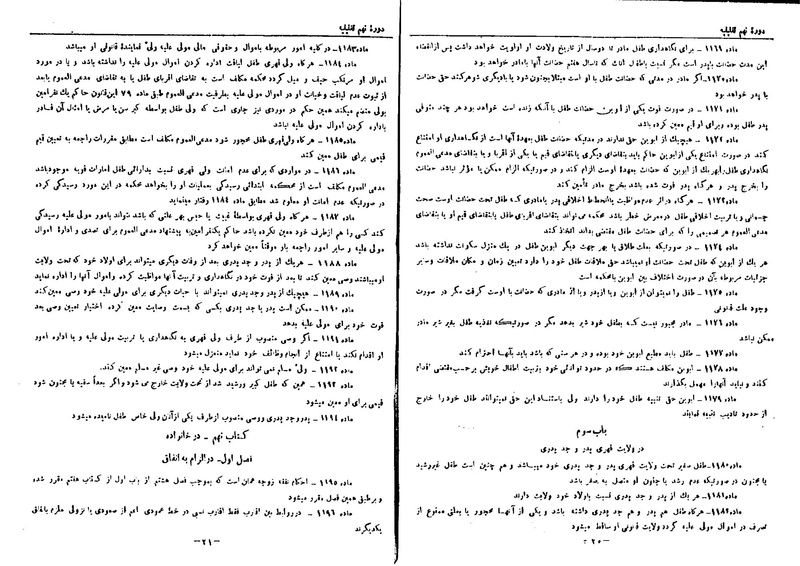 دورهٔ نهم تقنینیه
ماده ۱۱۶۹ - برای نگاهداری طفل مادر تا دوسال از تاریخ ولادت او اولویت خواهد داشت پس از انقضاء
این مدت حضانت با پدر است مگر نسبت باطفال اناث که تا سال هفتم حضانت آنها با مادر خواهد بود
ماده ۱۱۷۰ - اگر مادر در مدتی که حضانت طفل با او است مبتلا بجنون شود یا بدیگری شوهر کند حق حضانت
با پدر خواهد بود
ماده ۱۱۷۱ - در صورت فوت یکی از ابوین حضانت طفل با آنکه زنده است خواهد بود هر چند متوفی
پدر طفل بوده و برای او قیم معین کرده باشد
ماده ۱۱۷۲ - هیچیک از ابوین حق ندارند در مدتیکه حضانت طفل بعهدهٔ آنها است از نگاهداری او امتناع
کنند در صورت امتناع یکی از ابوین حاکم باید بتقاضای دیگری یا بتقاضای قیم یا یکی از اقربا و یا بتقاضای مدعی العموم
نگاهداری طفل را بهر یک از ابوین که حضانت بعهدهٔ اوست الزام کند و در صورتیکه الزام ممکن یا مؤثر نباشد حضانت
را بخرج پدر و هرگاه پدر فوت شده باشد بخرج مادر تأمین کند
ماده ۱۱۷۳ - هرگاه در اثر عدم مواظبت یا انحطاط اخلاقی پدر یا مادری که طفل تحت حضانت اوست صحت
جسمانی و یا تربیت اخلاقی طفل در معرض خطر باشد محکمه می‌تواند بتقاضای اقربای طفل یا بتقاضای قیم او یا بتقاضای
مدعی العموم هر تصمیمی را که برای حضانت طفل مقتضی بداند اتخاذ کند
ماده ۱۱۷۴ - در صورتیکه بعلت طلاق یا بهر جهت دیگر ابوین طفل در یک منزل سکونت نداشته باشد
هر یک از ابوین که طفل تحت حضانت او نمیباشد حق ملاقات طفل خود را دارد تعیین زمان و مکان ملاقات و سایر
جزئیات مربوطه بآن در صورت اختلاف بین ابوین با محکمه است
ماده ۱۱۷۵ - طفل را نمیتوان از ابوین و یا از پدر و یا از مادری که حضانت با اوست گرفت مگر در صورت
وجود علت قانونی
ماده ۱۱۷۶ - مادر مجبور نیست که بطفل خود شیر بدهد مگر در صورتیکه تغذیه طفل بغیر شیر مادر
ممکن نباشد
ماده ۱۱۷۷ - طفل باید مطیع ابوین خود بوده و در هر سنی که باشد باید بآنها احترام کند
ماده ۱۱۷۸ - ابوین مکلف هستند که در حدود توانائی خود بتربیت اطفال خویش برحسب مقتضی اقدام
کنند و نباید آنها را مهمل بگذارند
ماده ۱۱۷۹ - ابوین حق تنبیه طفل خود را دارند ولی باستناد این حق نمیتوانند طفل خود را خارج
از حدود تأدیب تنبیه نمایند
باب سوم
در ولایت قهری پدر و جد پدری
ماده ۱۱۸۰ - طفل صغیر تحت ولایت قهری پدر و جد پدری خود میباشد و هم چنین است طفل غیررشید
یا مجنون در صورتیکه عدم رشد یا جنون او متصل به صغر باشد
ماده ۱۱۸۱ - هر یک از پدر و جد پدری نسبت باولاد خود ولایت دارند
ماده ۱۱۸۲ - هرگاه طفل هم پدر و هم جد پدری داشته باشد و یکی از آنها محجور یا بعلتی ممنوع از
تصرف در اموال مولی علیه گردد ولایت قانونی او ساقط میشود
-۲۰-
دورهٔ نهم تقنینیه
ماده ۱۱۸۳ - در کلیه امور مربوطه باموال و حقوقی مالی مولی علیه ولی نمایندهٔ قانونی او میباشد
ماده ۱۱۸۴ - هرگاه ولی قهری طفل لیاقت اداره کردن اموال مولی علیه را نداشته باشد و یا در مورد
اموال او مرتکب حیف و میل گردد محکمه مکلف است به تقاضای اقربای طفل یا به تقاضای مدعی العموم بابعد
از ثبوت عدم لیاقت و خیانت او در اموال مولی علیه بطرفیت مدعی العموم طبق ماده ۷۹ این قانون حاکم یک نفر امین
بولی منضم میکند همین حکم در موردی نیز جاری است که ولی طفل بواسطه کبر سن یا مرض یا امثال آن قادر
باداره کردن اموال مولی علیه نباشد
ماده ۱۱۸۵ - هرگاه ولی قهری طفل محجور شود مدعی العموم مکلف است مطابق مقررات راجعه به تعیین قیم
قیمی برای طفل معین کند
ماده ۱۱۸۶ - در مواردی که برای عدم امانت ولی قهری نسبت بدارائی طفل امارات قویه موجود باشد
مدعی العموم مکلف است از محکمه ابتدائی رسیدگی بعملیات او را بخواهد محکمه در این مورد رسیدگی کرده
در صورتیکه عدم امانت او معلوم شد مطابق ماده ۱۱۸۴ رفتار مینماید
ماده ۱۱۸۷ - هرگاه ولی قهری بواسطهٔ غیبت یا حبس بهر علتی که باشد نتواند بامور مولی علیه رسیدگی
کند و کسی را هم از طرف خود معین نکرده باشد حاکم یکنفر امین به پیشنهاد مدعی العموم برای تصدی و ادارهٔ اموال
مولی علیه و سایر امور راجعه باو موقتاً معین خواهد کرد
ماده ۱۱۸۸ - هر یک از پدر و جد پدری بعد از وفات دیگری میتواند برای اولاد خود که تحت ولایت
او میباشند وصی معین کند تا بعد از فوت خود در نگاهداری و تربیت آنها مواظبت کرده و اموال آنها را اداره نماید
ماده ۱۱۸۹ - هیچیک از پدر و جد پدری نمیتواند با حیات دیگری برای مولی علیه خود وصی معین کند
ماده ۱۱۹۰ - ممکن است پدر یا جد پدری بکسی که بسمت وصایت معین کرده اختیار تعیین وصی بعد
فوت خود برای مولی علیه بدهد
ماده ۱۱۹۱ - اگر وصی منصوب از طرف ولی قهری به نگاهداری یا تربیت مولی علیه و یا اداره امور
او اقدام نکند یا امتناع از انجام وظائف خود نماید منعزل میشود
ماده ۱۱۹۲ - ولی مسلم نمی تواند برای مولی علیه خود وصی غیر مسلم معین کند.
ماده ۱۱۹۳ - همین که طفل کبیر و رشید شد از تحت ولایت خارج می شود و اگر بعداً سفیه یا مجنون شود
قیمی برای او معین میشود
ماده ۱۱۹۴ - پدر و جد پدری و وصی منصوب از طرف یکی از آنان ولی خاص طفل نامیده میشود
کتاب نهم - در خانواده
فصل اول - در الزام به انفاق
ماده ۱۱۹۵ - احکام نفقه زوجه همان است که بموجب فصل هشتم از باب اول از کتاب هفتم مقرر شده
و بر طبق همین فصل مقرر میشود
ماده ۱۱۹۶ - در روابط بین اقارب فقط اقارب نسبی در خط عمودی اعم از صعودی یا نزولی ملزم بانفاق
یکدیگرند
-۲۱-